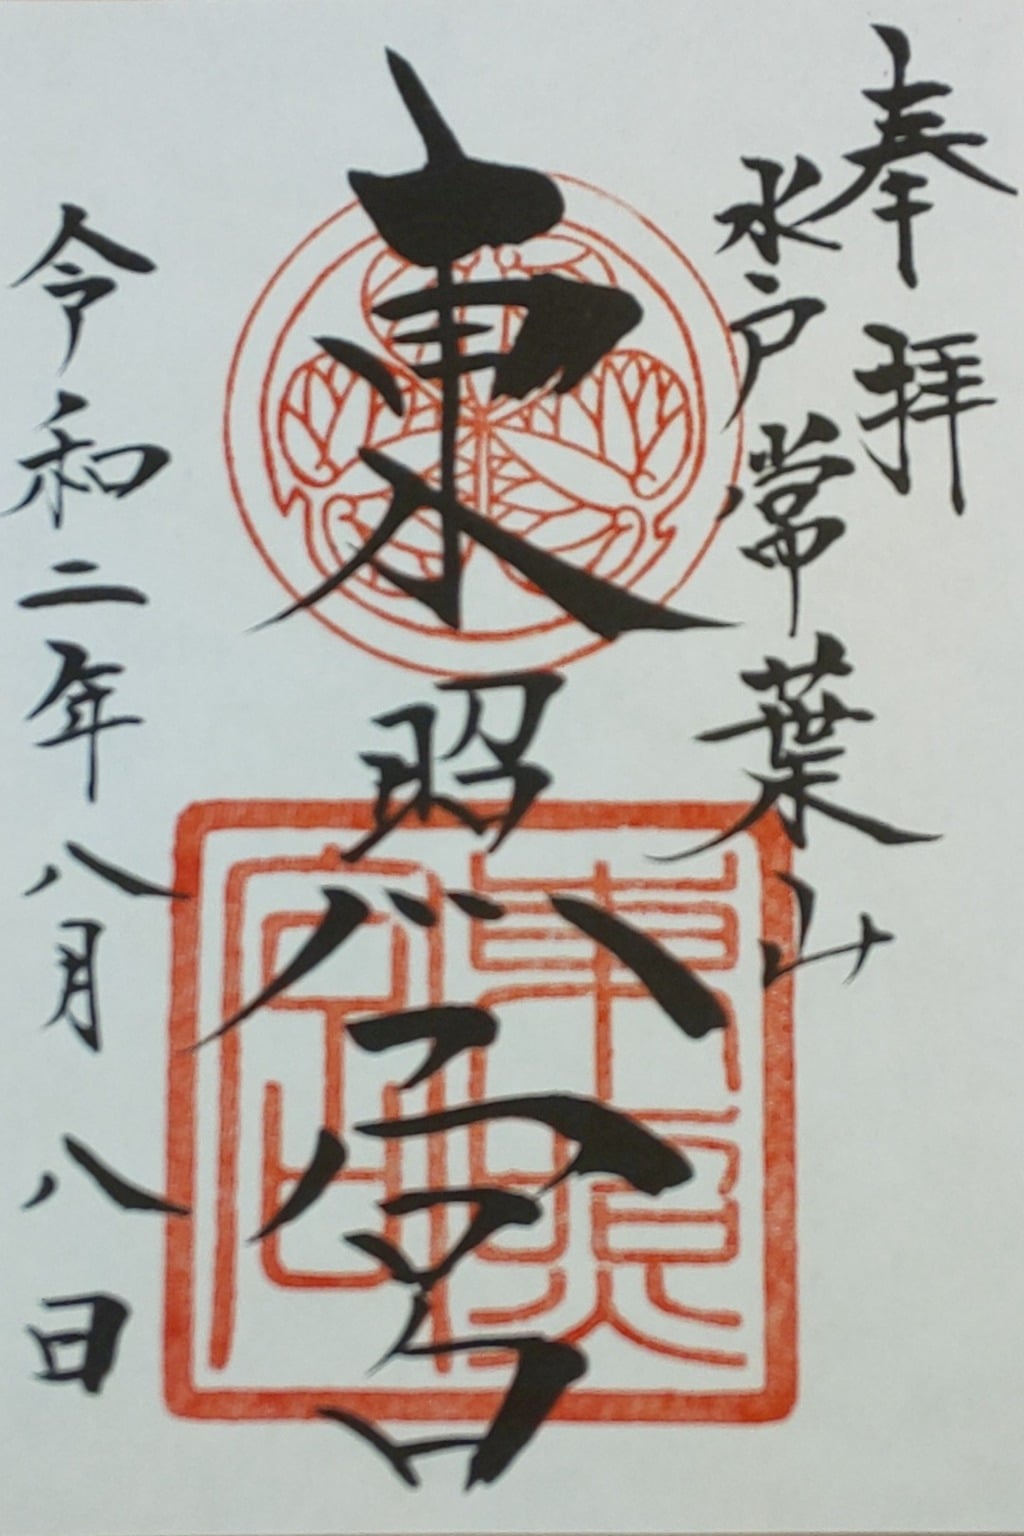 奉拝
水戸常葉山
東照宮
東照宮
令和二年八月八日